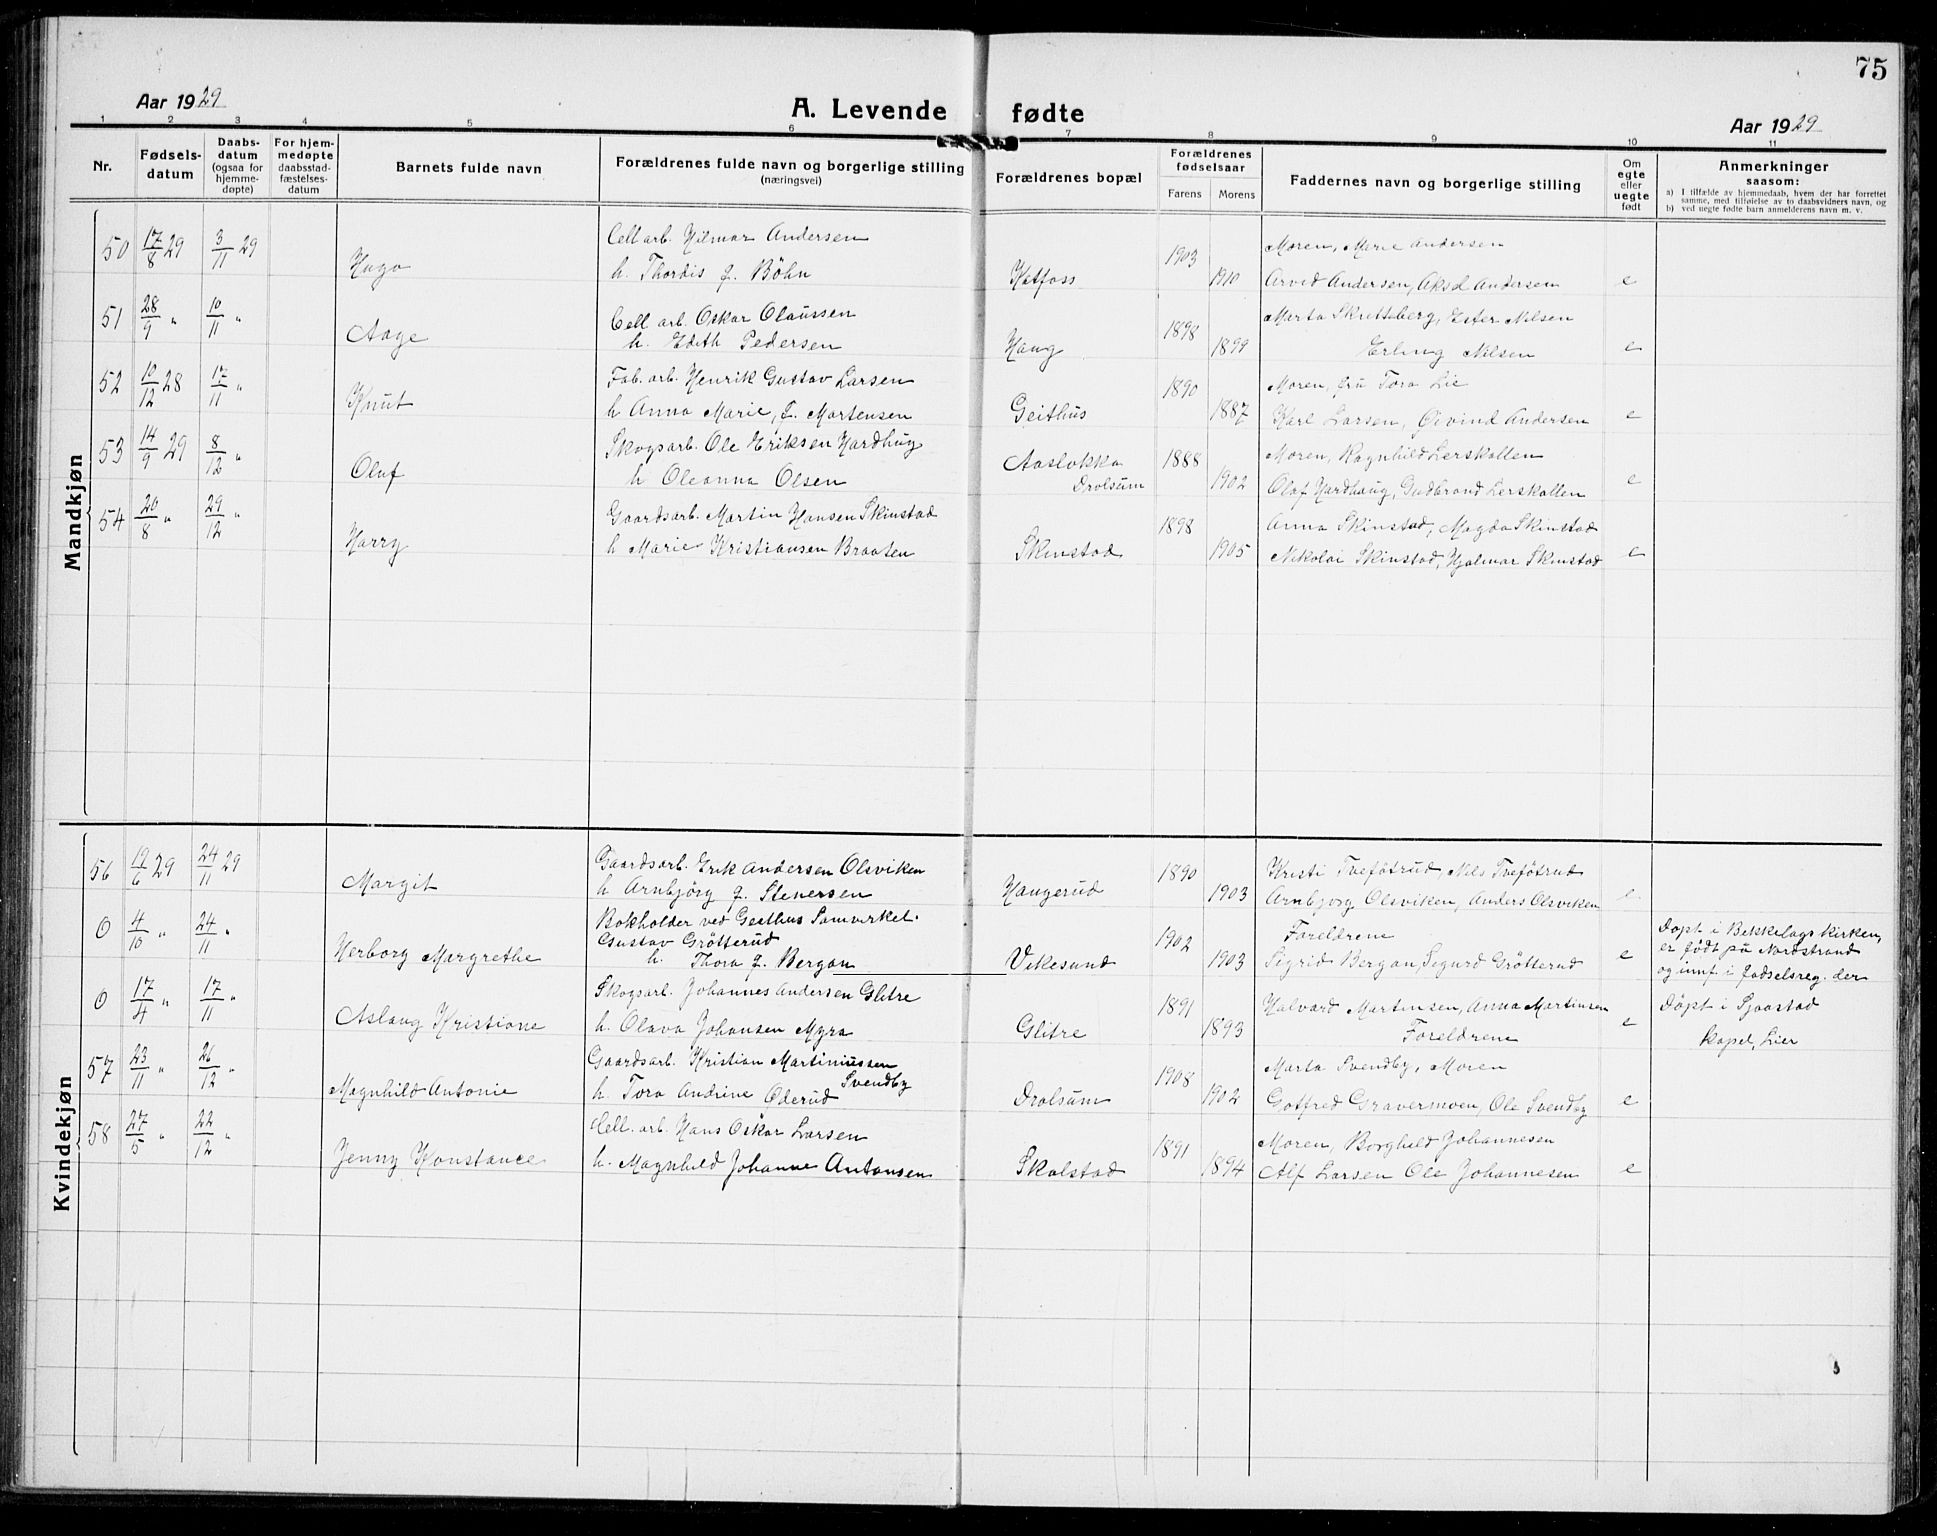 75
Aar 1929
A. Levende fødte
Aar 1929
1 2 3 4 5 6 7 8 9 10 11
Nr.
Fødsels-
datum
Daabs-
datum
(ogsaa for
hjemme-
døpte)
For hjem-
medøpte
daabsstad-
fæstelses-
datum
Barnets fulde navn
Forældrenes fulde navn og borgerlige stilling
(næringsvei)
Forældrenes bopæl
Forældrenes
fødselsaar
Farens Morens
Faddernes navn og borgerlige stilling
Om
egte
eller
uegte
født
Anmerkninger
saasom:
a) I tilfælde av hjemmedaab, hvem der har forrettet
samme, med tilføielse av to daabsvidners navn, og
b) ved uegte fødte barn anmelderens navn m. v.
Mandkjøn
50 17/8 29 3/11 29 Hugo
Cell arb. Hilmar Andersen
h. Thordis f. Böhn
Katfoss 1903 1910
Moren, Marie Andersen
Arvid Andersen, Aksel Andersen e
51 28/9 " 10/11 " Aage
Cell arb. Oskar Olaussen
h. Edith Pedersen
Haug 1898 1899
Marta Skretteberg, Ester Nilsen
Erling Nilsen e
52 10/12 28 17/11 " Knut
Fab. arb. Henrik Gustav Larsen
h Anna Marie, f. Martensen
Geithus 1890 1887
Moren, fru Tora Lie
Karl Larsen, Øivind Andersen e
53 14/9 29 8/12 " Olaf
Skogsarb. Ole Eriksen Hardhug
h Oleanna Olsen
Aaslokka
Drolsum 1888 1902
Moren, Ragnhild Lerskallen
Olaf Hardhaug, Gudbrand Lerskallen e
54 20/8 " 29/12 " Harry
Gaardsarb. Martin Hansen Skinstad
h Marie Kristiansen Braaten
Skinstad 1898 1905
Anna Skinstad, Magda Skinstad
Nikolai Skinstad, Hjalmar Skinstad e
Kvindekjøn
56 19/6 29 24/11 29 Margit
Gaardsarb. Erik Andersen Olsviken
h Arnbjörg f. Stenersen
Haugerud 1890 1903
Kristi Tveføtrud, Nils Tveføtrud
Arnbjorg Olsviken, Anders Olsviken e
0 4/10 " 24/11 " Herborg Margrethe
Bokholder ved Geithus Samvirkel.
Gustav Grötterud
h. Thora f. Bergan
Vikesund 1902 1903
Foreldrene
Sigrid Bergan, Sigurd Grötterud e
Döpt i Bekkelagskirken,
er födt på Nordstrand
og innf. i fødselsreg. der
0 17/4 " 17/11 " Aslaug Kristiane
Skogsarb. Johannes Andersen Glitre
h. Olava Johansen Myra
Glitre 1891 1893
Halvard Martinsen, Anna Martinsen
Foreldrene e
Döpt i Sjaastad
kapel, Lier
57 23/11 " 26/12 " Magnhild Antonie
Gaardsarb. Kristian Martiniussen
Svendby
h. Tora Andrine Oderud
Drolsum 1908 1902
Marta Svendby, Moren
Gotfred Gravermoen, Ole Svendby e
58 27/5 " 22/12 " Jenny Konstance
Cell. arb. Hans Oskar Larsen
h. Magnhild Johanne Antonsen
Skalstad 1891 1894
Moren, Borghild Johannesen
Alf Larsen Ole Johannesen e